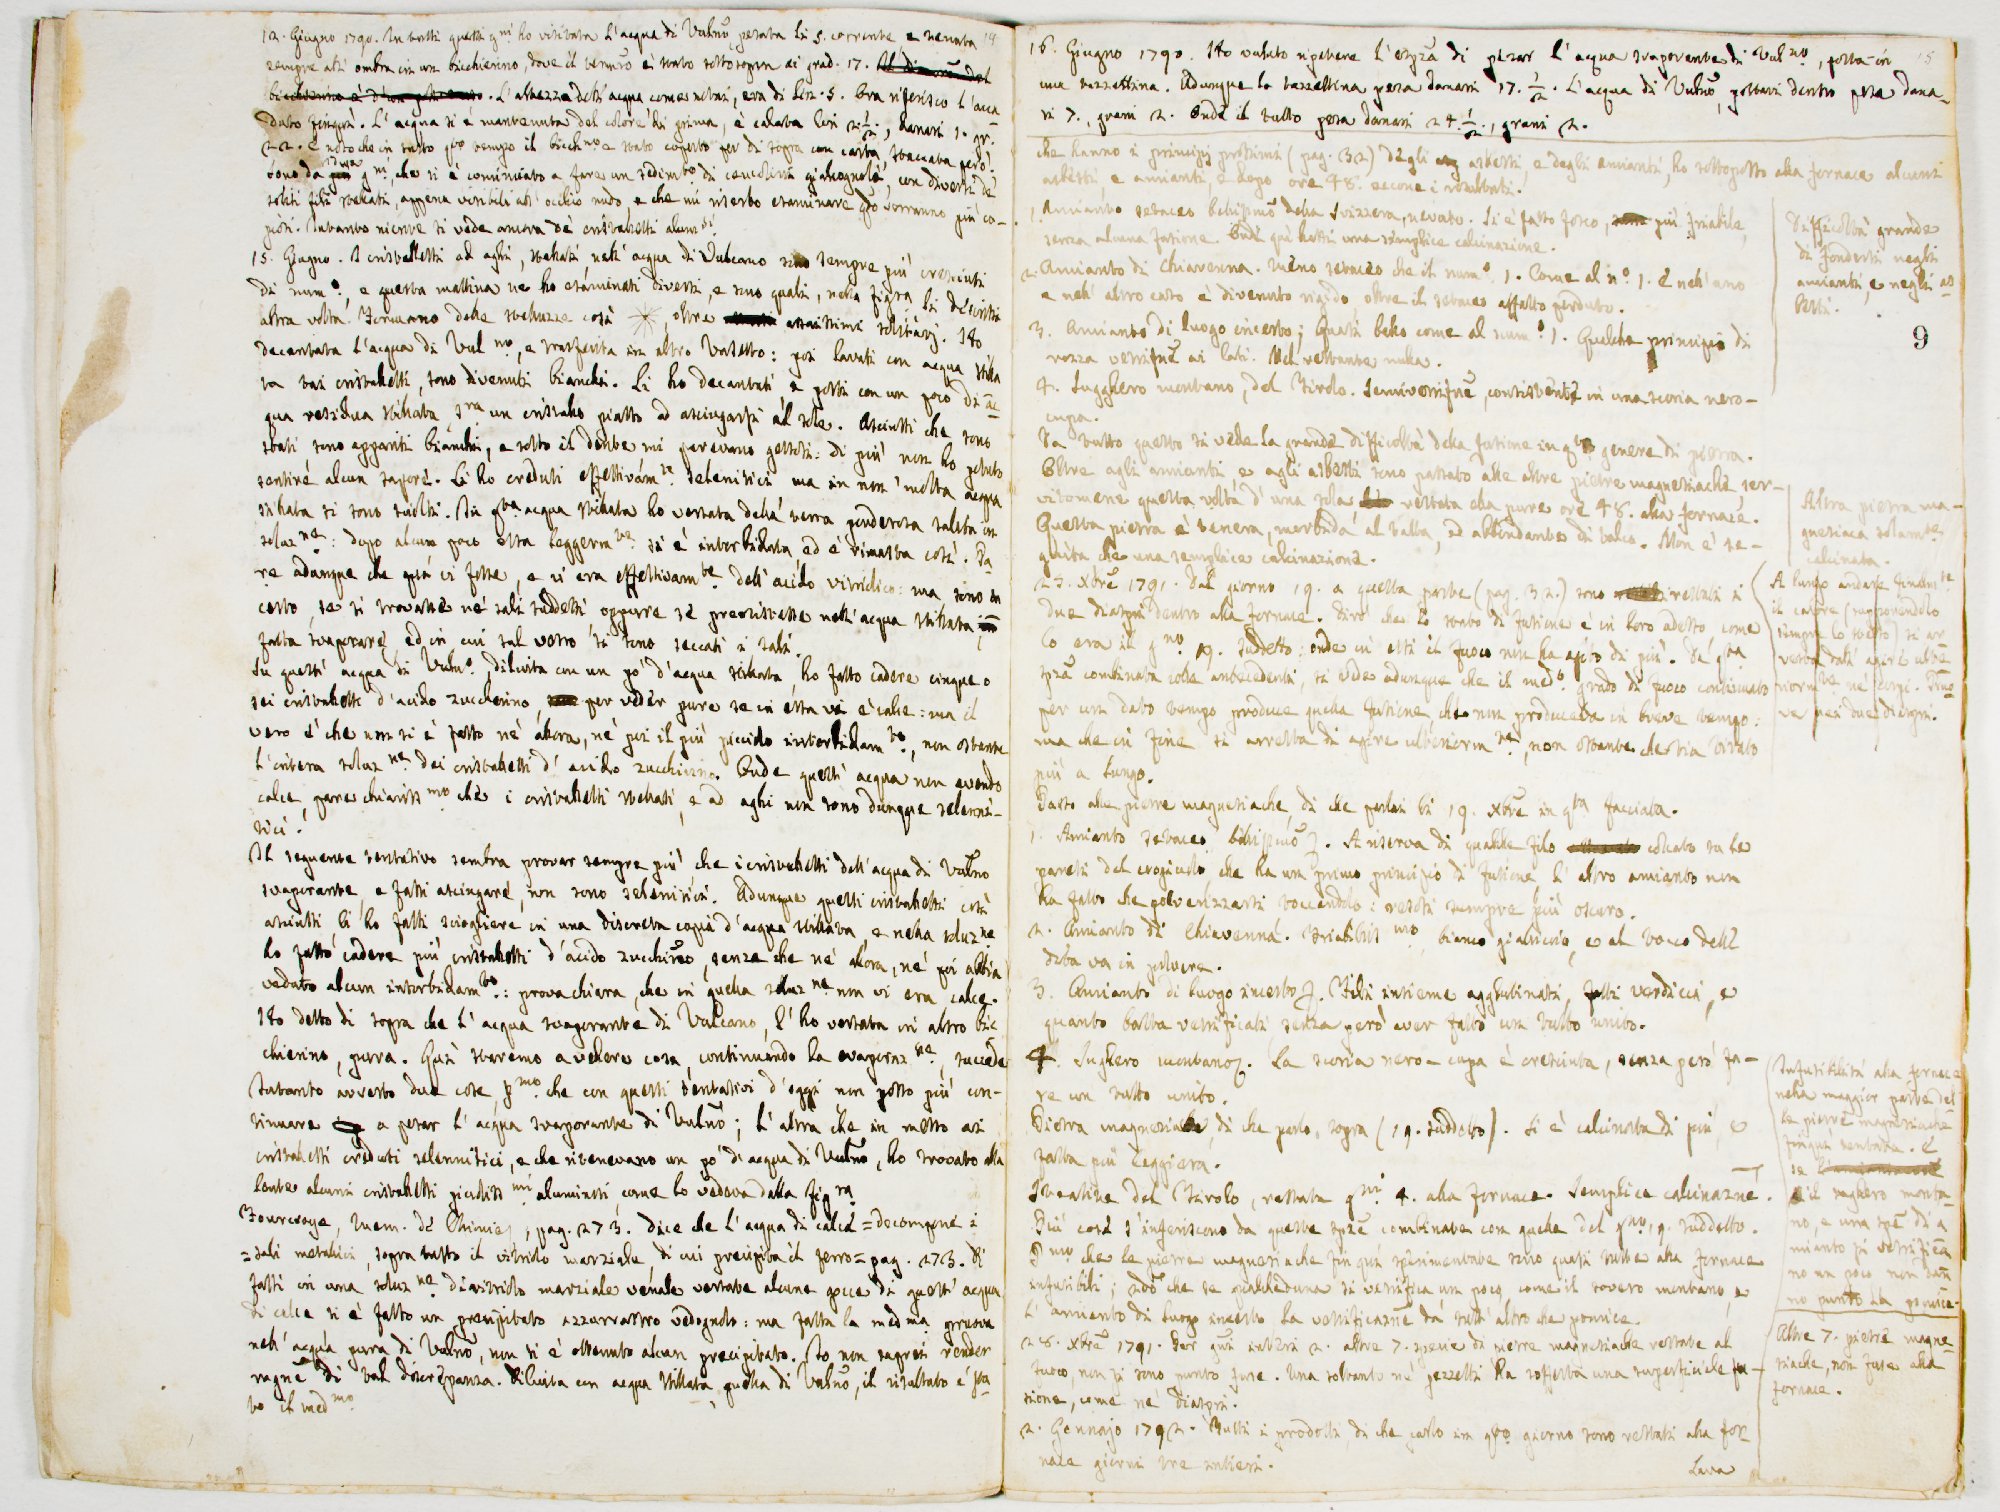 12. Giugno 1790. In tutti questi gni ho visitata l'acqua di Vulno, pesata li 5. corrente e tenuta 14
sempre all'ombra in un bicchierino, dove il termro è stato sottosopra ai grad. 17.
L'altezza dell'acqua come notai, era di lin. 5. Ora riferisco l'acca-
duto finquì. L'acqua si è mantenuta del colore di prima, è calata lin 2 1/2., danari 1. gr.
22. è noto che in tutto qto tempo il bicchno è stato coperto per di sopra con carta, staccata però.
Sono da gni, che si è cominciato a fare un sedimto di ceneolina giallognola, con diversi de'
soliti fili stellati, appena visibili all'occhio nudo e che mi riserbo esaminare qdo saranno più co-
piosi. Intanto niente si vede ancora de' cristalletti alumsi.
15. Giugno. I cristalletti ad aghi, stellati nell'acqua di Vulcano sono sempre più cresciuti
di numo, e questa mattina ne ho esaminati diversi, e sono quali, nella figra li descrissi
altra volta. Formano delle stelluzze così, oltre assaissimi solitarj. Ho
decantata l'acqua di Vulno, e trasferita in altro vasetto: poi lavati con acqua stilla
ta tai cristalletti, sono divenuti bianchi. Li ho decantati, e posti con un poco di ac-
qua residua stillata sra un cristallo piatto ad asciugarsi al sole. Asciutti che sono
stati sono appariti bianchi, e sotto il dente mi parevano gessosi: di più non ho potuto
sentire alcun sapore. Li ho creduti effettivamte selenitici ma in non molta acqua
stillata si sono sciolti. In qta acqua stillata ho versata della terra ponderosa salita in
soluzne: dopo alcun poco essa leggermte si è intorbidata, ed è rimasta così. Pa-
re adunque che quì ci fosse, e vi era effettivamte dell'acido vitriolico: ma sono in
certo, se si trovasse ne' sali suddetti oppure se preesistesse nell'acqua stillata
fatta svaporare, ed in cui sul vetro si sono seccati i sali.
In quest'acqua di Vulno, diluita con un po' d'acqua stillata, ho fatto cadere cinque o
sei cristalletti d'acido zuccherino, per veder pure se in essa vi è calce: ma il
vero è che non si è fatto nè allora, nè poi il più piccolo intorbidamto, non ostante
l'intera soluzne dei cristalletti d'acido zuccherino. Onde quest'acqua non avendo
calce, pare chiarissmo che i cristalletti stellati, e ad aghi non sono dunque seleni-
tici.
Il seguente tentativo sembra provar sempre più che i cristalletti dell'acqua di Vulno
svaporante, e fatti asciugare, non sono selenitici. Adunque questi cristalletti così
asciutti, li ho fatti sciogliere in una discreta copia d'acqua stillata, e nella soluzne
ho fatto cadere più cristalletti d'acido zuccherino, senza che nè allora, nè poi abbia
veduto alcun intorbidamto.: prova chiara, che in quella soluzne non vi era calce.
Ho detto di sopra che l'acqua svaporante di Vulcano, l'ho versata in altro bic
chierino, pura. Così staremo a vedere cosa, continuando la evaporazne, succede
Intanto avverto due cose, pmo. che con questi tentativi d'oggi non posso più con-
tinuare a pesar l'acqua svaporante di Vulno; l'altra che in mezzo ai
cristalletti creduti selennitici, e che ritenevano un po' di acqua di Vulno, ho trovato alla
lente alcuni cristalletti picciolissmi aluminosi, come lo vedeva dalla figra.
Fourcroye, Mem. de Chimie, pag. 273. dice che l'acqua di calce = decompone i
= sali metallici, sopra tutto il vitriolo marziale, di cui precipita il ferro = pag. 273. Di
fatti in una soluzne di vitriolo marziale venale versate alcune gocce di quest'acqua
di calce si è fatto un precipitato azzurrastro vedognolo: ma fatta la medma. pruova
nell'acqua pura di Vulno, non si è ottenuto alcun precipitato. Io non saprei render
ragne di tal discrepanza. Diluita con acqua stillata, quella di Vulno, il risultato è sta-
to il medmo.
16. Giugno 1790. Ho voluto ripetere l'espza di pesar l'acqua svaporante di Vulno, posta in 15
una tazzettina. Adunque la tazzettina pesa danari 17. 1/2. L'acqua di Vulno, postavi dentro pesa dana-
ri 7., grani 2. Onde il tutto pesa danari 24. 1/2., grani 2.
che hanno i principj prossimi (pag. 32) degli asbesti, e degli amianti, ho sottoposto alla fornace alcuni
asbesti, e amianti, e dopo ore 48. eccone i risultati.
1. Amianto setaceo bellissimo della Svizzera, nevato. Si è fatto fosco, più friabile,
senza alcuna fusione. Onde quì hassi una semplice calcinazione.
2. Amianto di Chiavenna. Meno setaceo che il numo. 1. Come al no. 1. E nell'uno
e nell'altro caso è divenuto rigido, oltre il setaceo affatto perduto.
3. Amianto di luogo incerto; quasi bello come al numo 1. Qualche principio di
rozza vetrifne ai lati. Nel restante nulla.
4. Sugghero montano, del Tirolo. Semivetrifne, consistente in una scoria nero-
cupa.
Da tutto questo si vede la grande difficoltà della fusione in qto genere di pietra.
Oltre agli amianti e agli asbesti sono passato alle altre pietre magnesiache, ser-
vitomene questa volta d'una sola restata ella pure ore 48. alla fornace.
Questa pietra è tenera, morbida al tatto, ed abbondante di talco. Non è se-
guita che una semplice calcinazione.
23. Xbre 1791. Dal giorno 19. a questa parte (pag. 32.) sono restati i
due diaspri dentro alla fornace. Dirò che lo stato di fusione è in loro adesso, come
lo era il gno. 19. suddetto: onde in essi il fuoco non ha agito di più. Da qta
spza combinata colle antecedenti, si vede adunque che il medo. grado di fuoco continuato
per un dato tempo produce quella fusione che non produceva in breve tempo:
ma che in fine si arresta di agire ulteriormte, non ostante che stia
più a lungo.
Passo alle pietre magnesiache, di che parlai li 19. Xbre in qta facciata.
1. Amianto setaceo bellissimo]. A riserva di qualche filo collocato su le
pareti del crogiuolo che ha un primo principio di fusione, l'altro amianto non
ha fatto che polverizzarsi toccandolo: restò sempre più oscuro.
2. Amianto di Chiavenna. Friabilissmo, bianco gialliccio, e al tocco delle
dita va in polvere.
3. Amianto di luogo incerto]. Fili insieme agglutinati, fatti verdicci, e
quanto basta vetrificati senza però aver fatto un tutto unito.
4. Sughero montano]. La scoria nero-cupa è cresciuta, senza però fa-
re un tutto unito.
Pietra magnesiaca, di che parlo sopra (19. suddetto). Si è calcinata di più, e
fatta più leggiera.
Steatite del Tirolo, restata gni 4. alla fornace. Semplice calcinazne.
Più cose s'inferiscono da queste spze combinate con quelle del gno 19. suddetto.
Pmo che le pietre magnesiache fin quì sperimentate sono quasi tutte alla fornace
infusibili; 2do che se qualcheduna si vetrifica un poco, come il sovero montano, e
l'amianto di luogo incerto la vetrificazne dà tutt'altro che pomice.
28. Xbre 1791. Per gni interi 2. altre 7. specie di pietre magnesiache restate al
fuoco, non si sono punto fuse. Una soltanto ne' pezzetti ha sofferta una superficiale fu-
sione, come ne' diaspri.
2. Gennajo 1792. Tutti i prodotti, di che parlo in qto giorno sono restati alla for
nace giorni tre intieri.
Lava
Difficoltà grande
di fondersi negli
amianti, e negli as
besti.
9
Altra pietra ma-
gnesiaca solamte
calcinata.
A lungo andare finalmte
il calore (supponendolo
sempre lo stesso) si ar
resta dall'agire ulte
riormte ne' corpi. Pruo
va nei due diaspri.
Infusibilità alla fornace
nella maggior parte del
le pietre magnesiache
finquì tentate. E
se
il sughero monta
no, e una spe d'a
mianto si vetrifica
no un poco non dan
no punto la pomice.
Altre 7. pietre magne-
siache, non fuse alla
fornace.